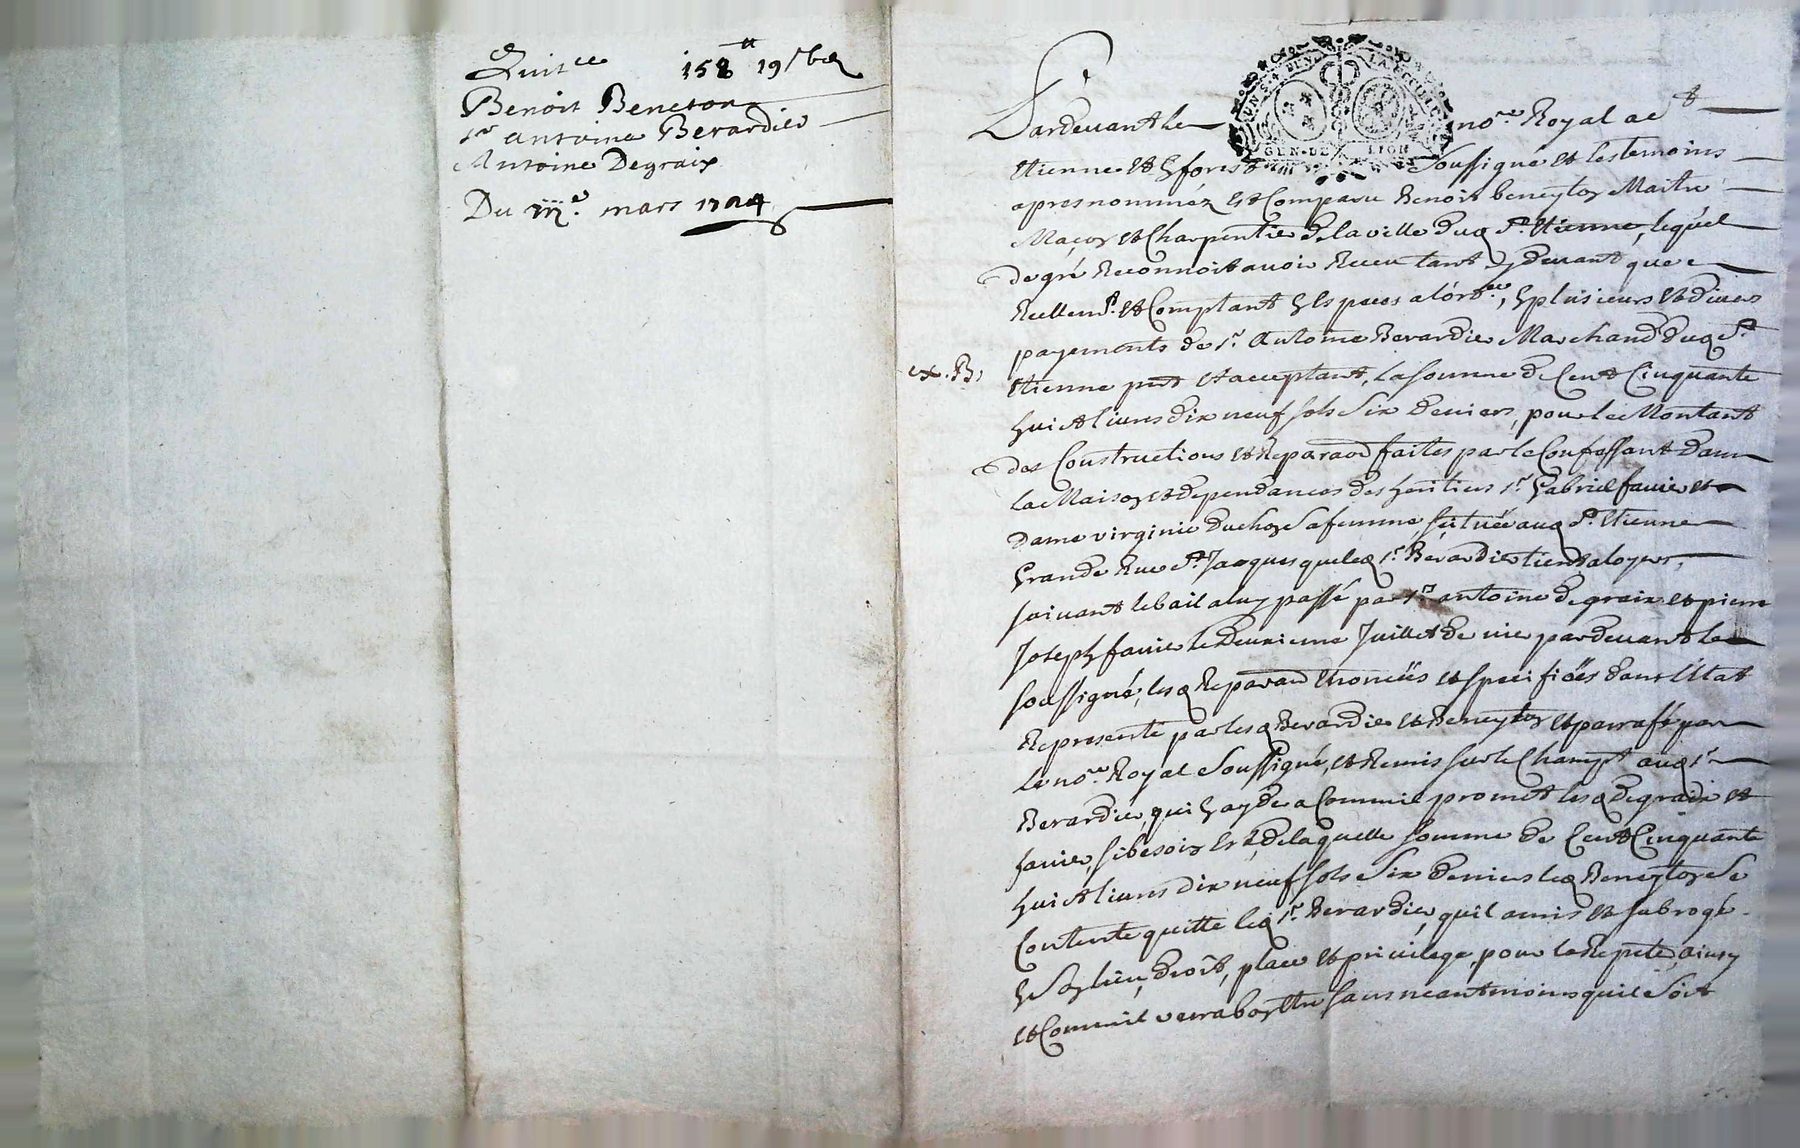 Quitce 158tt 19s 6d
Benoit Beneton
sr antoine Berardier
Antoine Degraix
Du iiie. mars 1724
Pardevant le nore Royal a St
Etienne et Forest Soussigné et les temoins
apres nommez Est Comparu Benoit beneyton Maitre
Maçon et Charpentier de la ville dud St. Etienne, lequel
de gré Reconnoit avoir Receu tant cy devant que
Reellemt. et Comptant en Especes a l'ordre, en plusieurs et divers
payements de sr. Antoine Berardier Marchand dud St
ex. B,
Etienne prnt et acceptant, La somme de Cent Cinquante
huict livres dix neuf sols Six deniers, pour le Montant
des Constructions et Reparaons faites par le Confessant dans
La Maison et dependances des heritiers sr. Gabriel favier et
Dame virginie duchon Sa femme, scituée aud St. Etienne
Grande Rue St. Jacques que led sr. Berardier tient a loyer,
suivant le bail a luy passé par srs antoine degraix et pierre
Joseph favier le deuxieme Juillet de nier pardevant le
soussigné, lesd Reparaons enoncées et specifiées dans l'Etat
Representé par lesd Berardier et Beneyton et parrafé par
le nore Royal Soussigné, et Remis sur le Champt aud sr
Berardier, qui en ayder a Comme il promet lesd degraix et
favier, si besoin Est, de laquelle somme de Cent Cinquante
huict livres dix neuf sols Six deniers led Beneyton Se
Contente quitte led sr. Berardier, qu'il a mis et subrogé
en Son lieu, droit, place et privilege, pour la Repeter, ainsy
et Comme il verra bon Etre sans neantmoins qu'il Soit